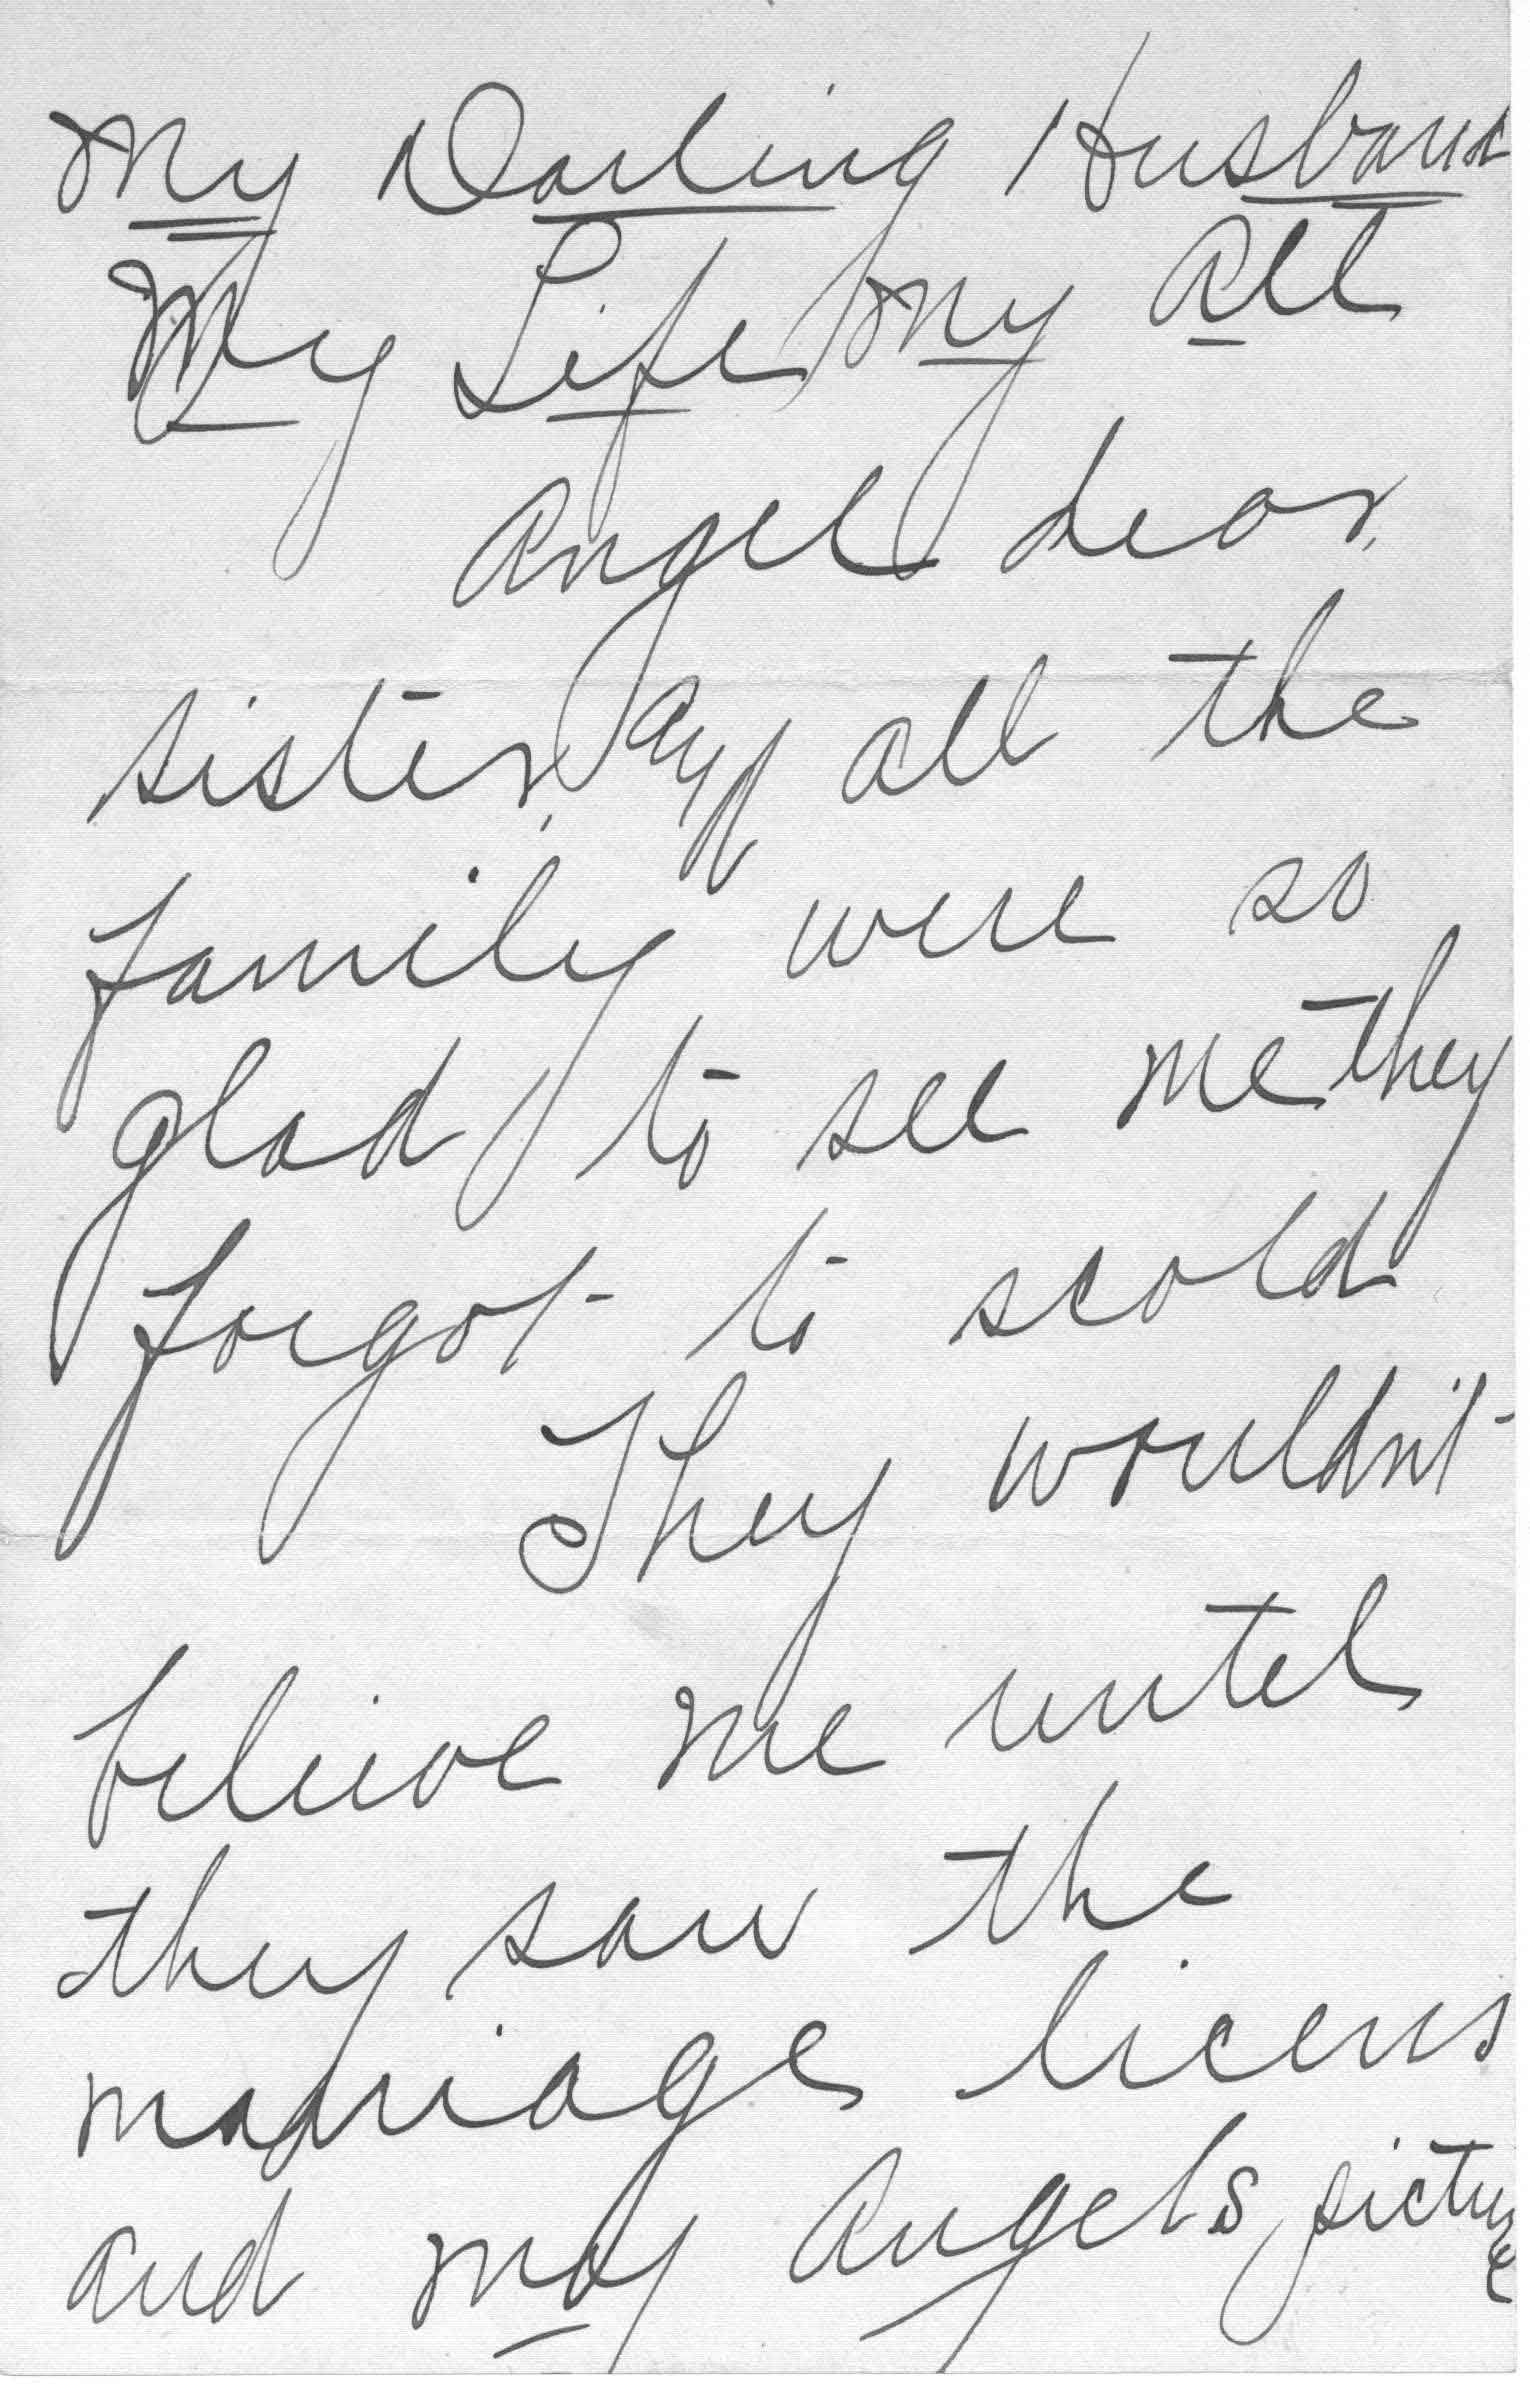 My Darling Husband
My Life my all
Angel dear,
sister, and all the
family were so
glad to see me they
forgot to scold
They wouldn't
believe me untel
they saw the
marriage licens
and my Angels picture